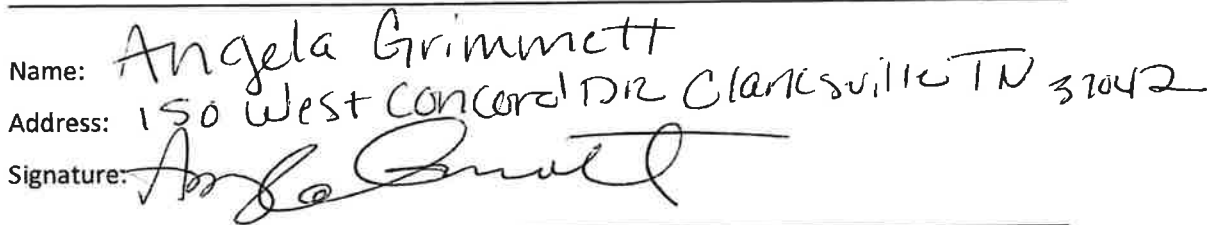 Name: Angela Grimmett
Address: 150 West Concord DR Clarksville TN 37042
Signature: Angela Grimmett